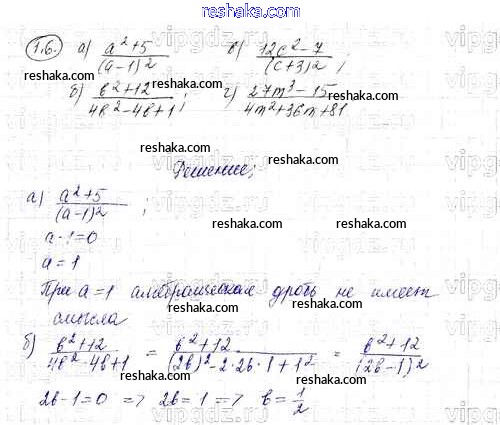 1.6. а) a²+5/(a-1)² в) 12c²-7/(c+3)²;
б) b²+12/4b²-4b+1; г) 27m³-15/4m²+36m+81
Решение;
а) a²+5/(a-1)²;
a-1=0
a=1
При a=1 алгебраическая дробь не имеет
смысла
б) b²+12/4b²-4b+1 = b²+12/(2b)²-2·2b·1+1² = b²+12/(2b-1)²
2b-1=0 => 2b=1 => b=1/2
reshaka.com
reshaka.com
reshaka.com
reshaka.com
reshaka.com
reshaka.com
reshaka.com
reshaka.com
reshaka.com
reshaka.com
reshaka.com